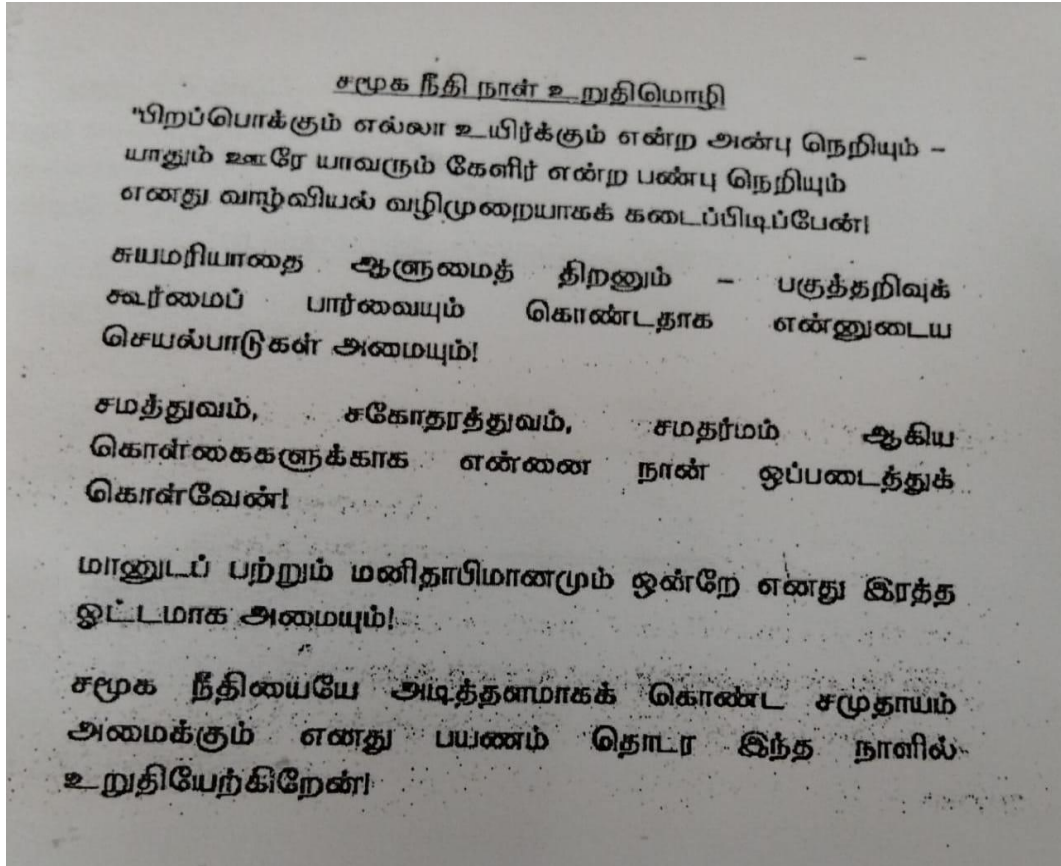 சமூக நீதி நாள் உறுதிமொழி
"பிறப்பொக்கும் எல்லா உயிர்க்கும் என்ற அன்பு நெறியும் –
யாதும் ஊரே யாவரும் கேளிர் என்ற பண்பு நெறியும்
எனது வாழ்வியல் வழிமுறையாகக் கடைப்பிடிப்பேன்!
சுயமரியாதை ஆளுமைத் திறனும் – பகுத்தறிவுக்
கூர்மைப் பார்வையும் கொண்டதாக என்னுடைய
செயல்பாடுகள் அமையும்!
சமத்துவம், சகோதரத்துவம், சமதர்மம் ஆகிய
கொள்கைகளுக்காக என்னை நான் ஒப்படைத்துக்
கொள்வேன்!
மானுடப் பற்றும் மனிதாபிமானமும் ஒன்றே எனது இரத்த
ஓட்டமாக அமையும்!
சமூக நீதியையே அடித்தளமாகக் கொண்ட சமுதாயம்
அமைக்கும் எனது பயணம் தொடர இந்த நாளில்
உறுதியேற்கிறேன்!